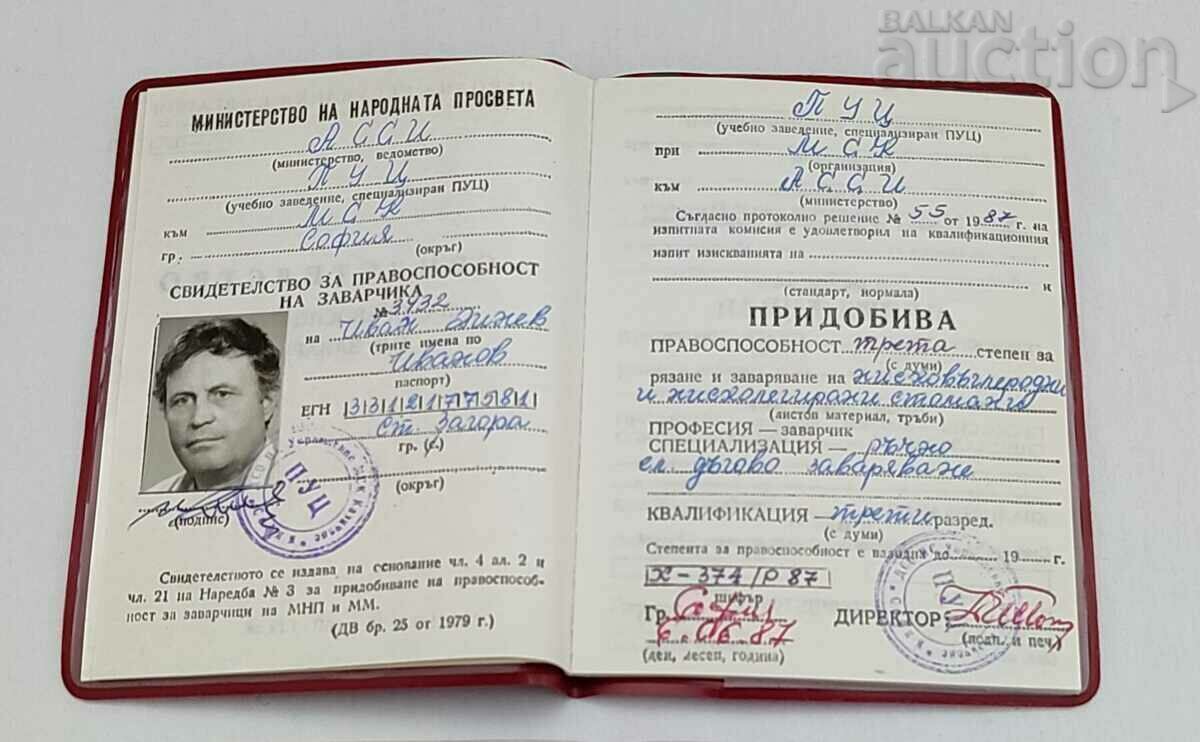 BALKAN
auction
МИНИСТЕРСТВО НА НАРОДНАТА ПРОСВЕТА
АССИ
(министерство, ведомство)
ПУЦ
(учебно заведение, специализиран ПУЦ)
към МСК
гр. София (окръг)
СВИДЕТЕЛСТВО ЗА ПРАВОСПОСОБНОСТ
НА ЗАВАРЧИКА
№ 3432
на Иван
(трите имена по
Иванов
паспорт)
ЕГН
Ст. Загора
гр. (с.)
(окръг)
(подпис)
ПУЦ
Свидетелството се издава на основание чл. 4 ал. 2 и
чл. 21 на Наредба № 3 за придобиване на правоспособ-
ност за заварчици на МНП и ММ.
(ДВ бр. 25 от 1979 г.)
ПУЦ
(учебно заведение, специализиран ПУЦ)
при МСК
(организация)
към АССИ
(министерство)
Съгласно протоколно решение № 55 от 1987 г. на
изпитната комисия е удовлетворил на квалификационния
изпит изискванията на
и
(стандарт, нормала)
ПРИДОБИВА
ПРАВОСПОСОБНОСТ трета степен за
(с думи)
рязане и заваряване на нисковъглеродни
и нисколегирани стомани
(листов материал, тръби)
ПРОФЕСИЯ — заварчик
СПЕЦИАЛИЗАЦИЯ — ръчно
ел. дъгово заваряване
КВАЛИФИКАЦИЯ — трети разред.
(с думи)
Степента за правоспособност е валидна до 19 г.
X-374/Р87
шифър
Гр. София
6.06.87
(ден, месец, година)
ДИРЕКТОР:
(подп. и печ)